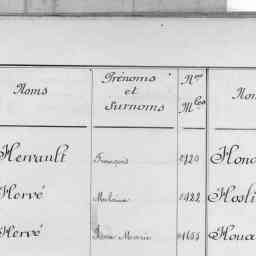 Noms Prénoms et Surnoms Nos Mles Nom
Hervault François 0120 Hono
Hervé 0122 Hosli
Hervé Pierre Marie Houa